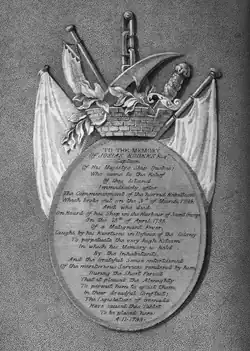 TO THE MEMORY
Of
Captain
Of His Majestys Ship Quebec
Who came to the Relief
Of this Island
Immediately after
The Commencement of the horrid Rebellion
Which broke out on the 3rd of March 1795
And who died
On Board of his Ship in the Harbour of
On the of April 1795
Of a Malignant Fever
Caught by his Exertions in Defence of the Colony
To perpetuate the very high Esteem
In which his Memory is held
By the Inhabitants
And the grateful Sense entertained
Of the meritorious Services rendered by him
During the Short Period
That it pleased the Almighty
To permit him to assist them
In their dreadful Conflict
The Legislature of Grenada
Have caused this Tablet
To be placed here